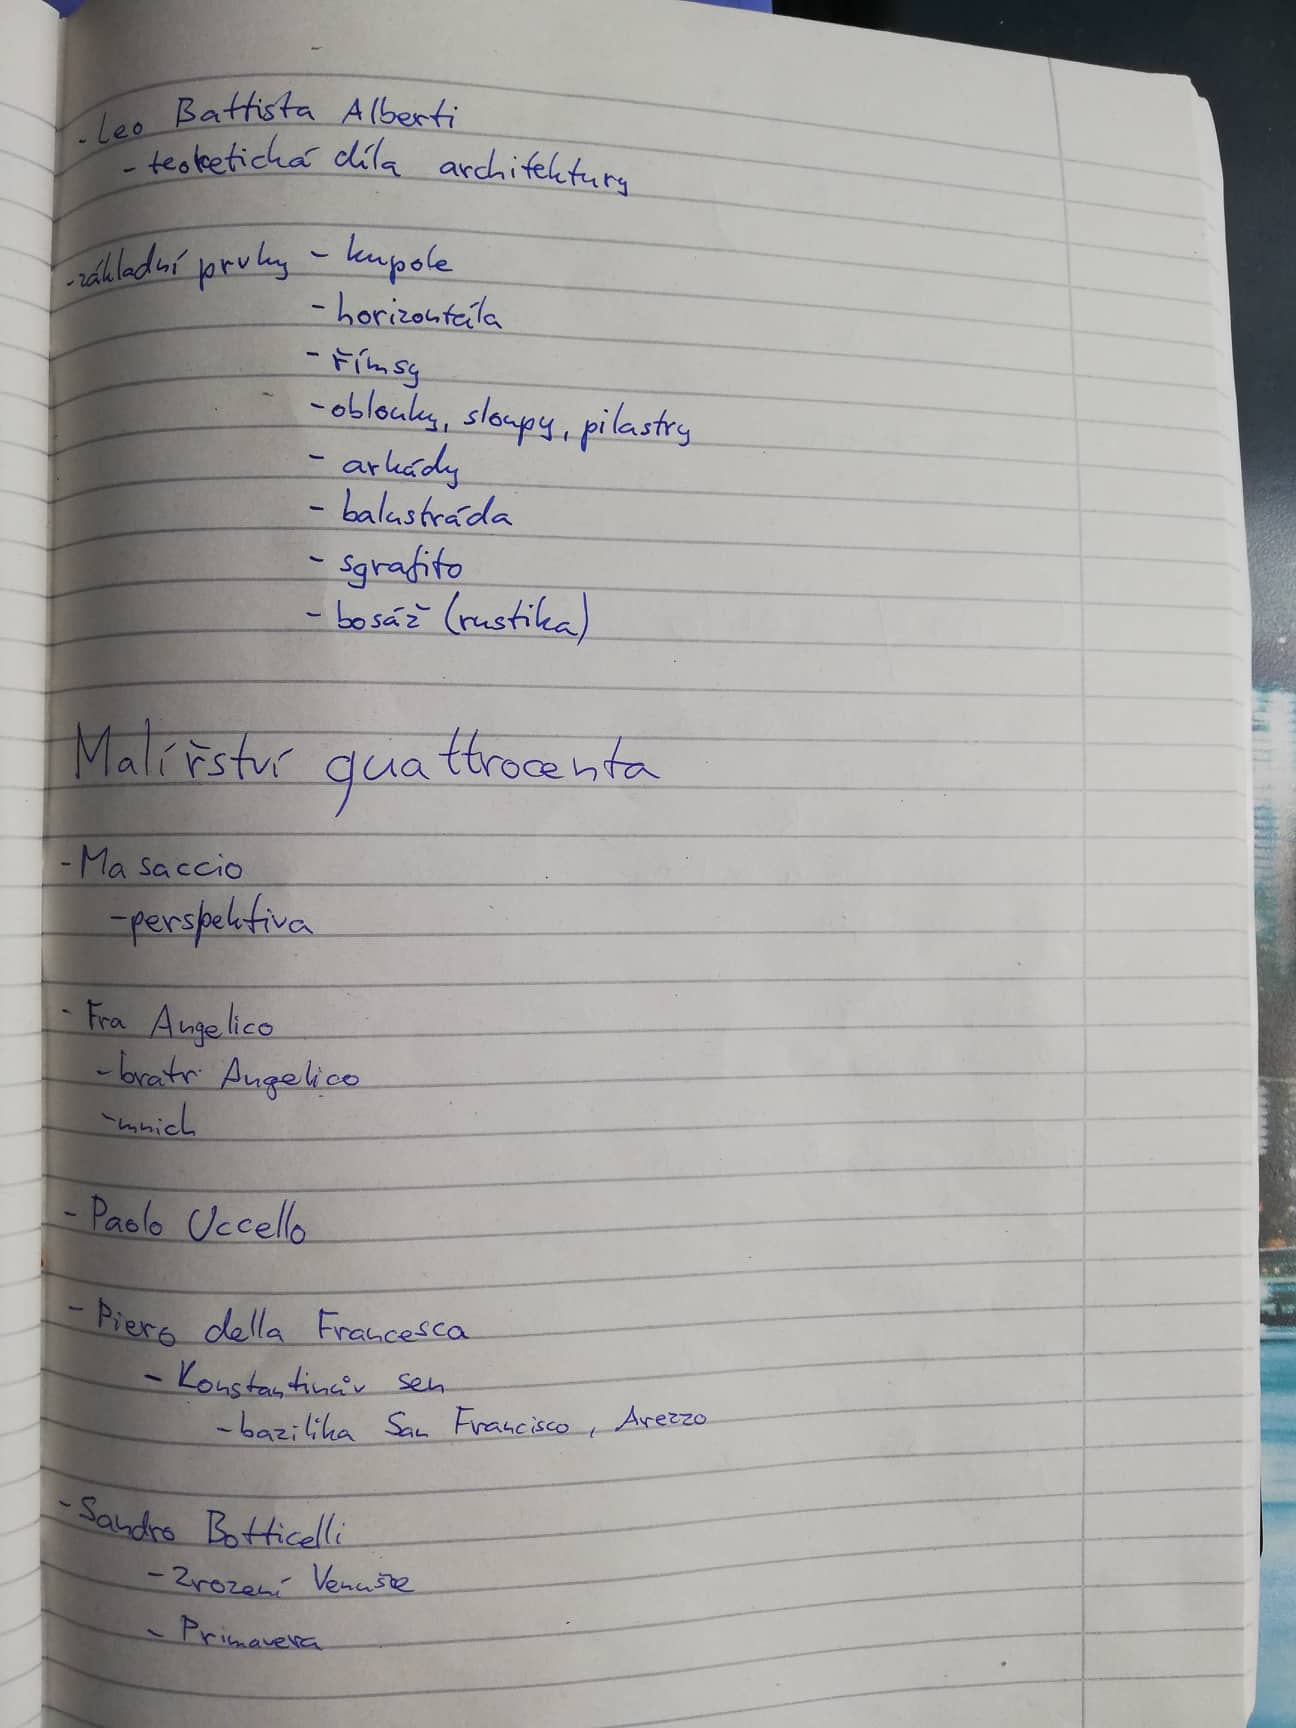 - Leo Battista Alberti
- teoretická díla architektury
- základní prvky - kupole
- horizontála
- římsy
- oblouky, sloupy, pilastry
- arkády
- balustráda
- sgrafito
- bosáž (rustika)
Malířství quattrocenta
- Masaccio
- perspektiva
- Fra Angelico
- bratr Angelico
- mnich
- Paolo Uccello
- Piero della Francesca
- Konstantinův sen
- bazilika San Francisco, Arezzo
- Sandro Botticelli
- Zrození Venuše
- Primavera